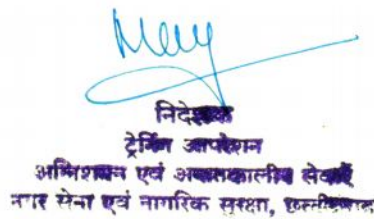 निदेशक
ट्रेनिंग आपरेशन
अग्निशमन एवं आपातकालीन सेवायें
नगर सेना एवं नागरिक सुरक्षा,